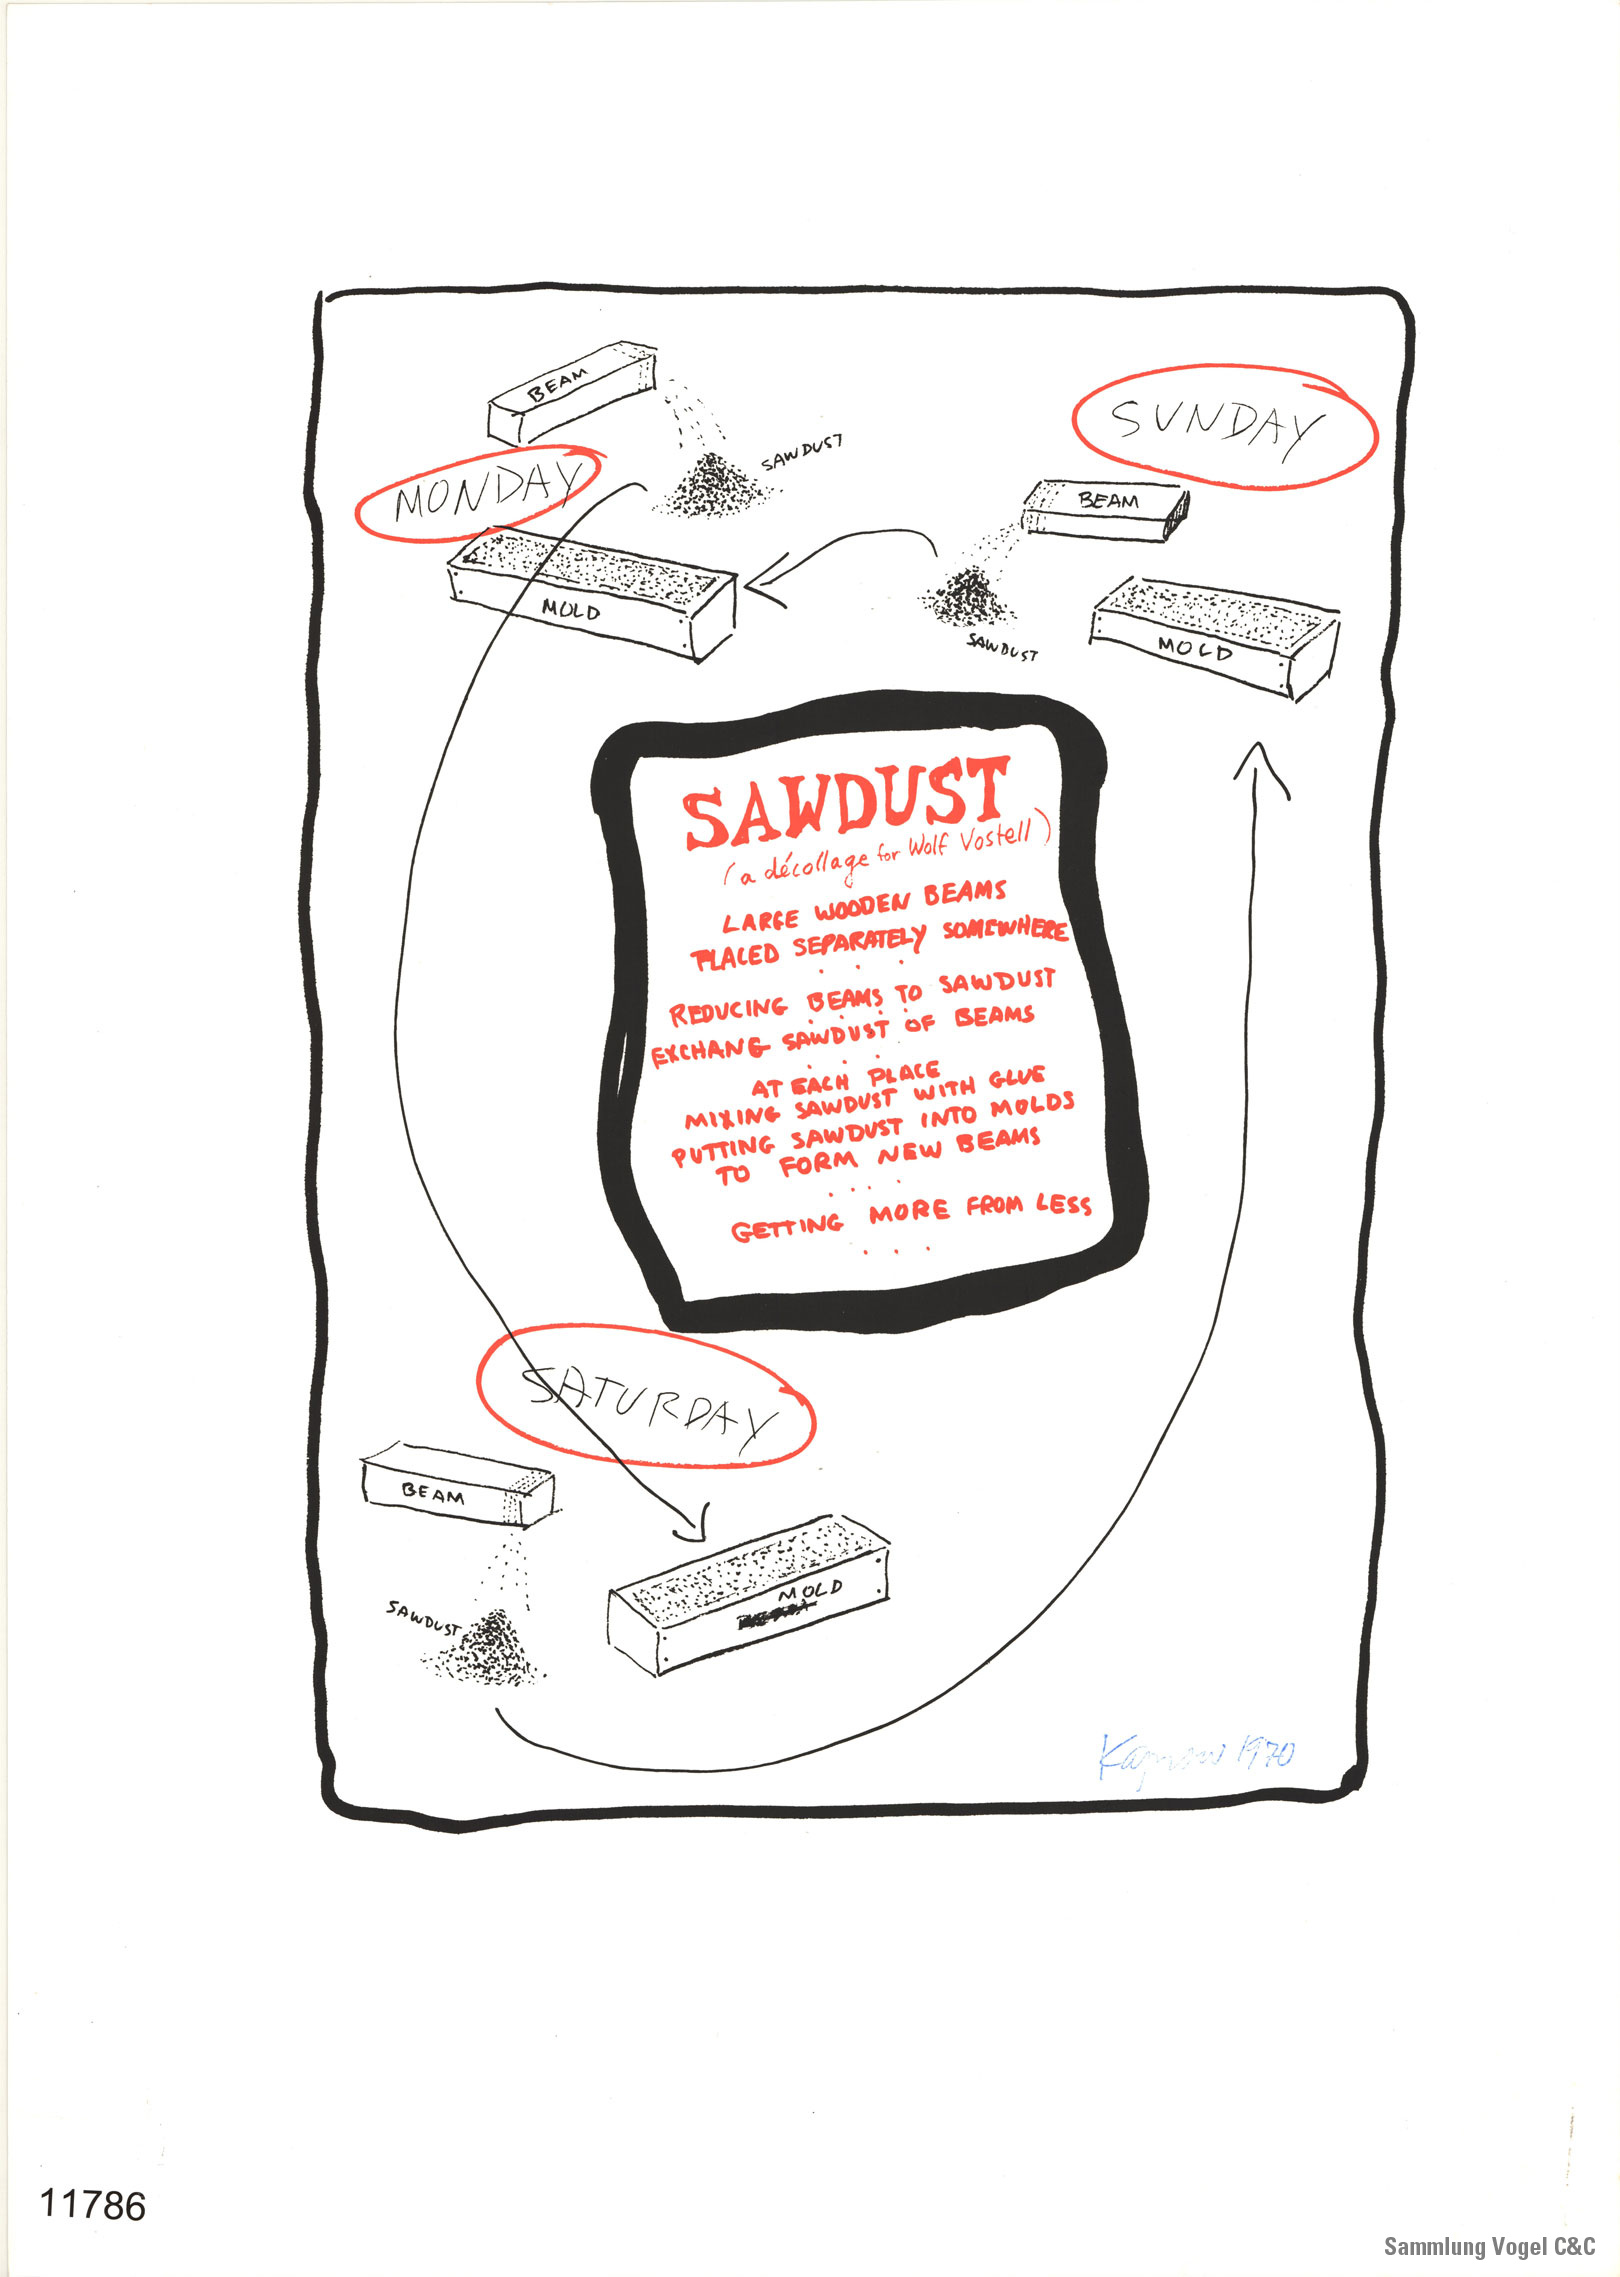 BEAM
SAWDUST
MONDAY
MOLD
SUNDAY
BEAM
SAWDUST
MOLD
SAWDUST
(a décollage for Wolf Vostell)
LARGE WOODEN BEAMS
PLACED SEPARATELY SOMEWHERE
. . .
REDUCING BEAMS TO SAWDUST
. . . .
EXCHANG SAWDUST OF BEAMS
. . .
AT EACH PLACE
MIXING SAWDUST WITH GLUE
PUTTING SAWDUST INTO MOLDS
TO FORM NEW BEAMS
. . . .
GETTING MORE FROM LESS
. . .
SATURDAY
BEAM
SAWDUST
MOLD
Kaprow 1970
11786
Sammlung Vogel C&C